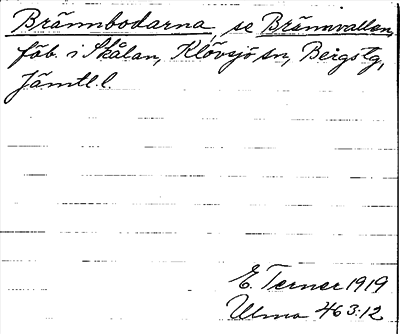 Brännbodarna, se Brännvallen,
fäb. i Skålan, Klövsjö sn, Bergs tg,
Jämtl. l.
E. Terner 1919
Ulma 463:12